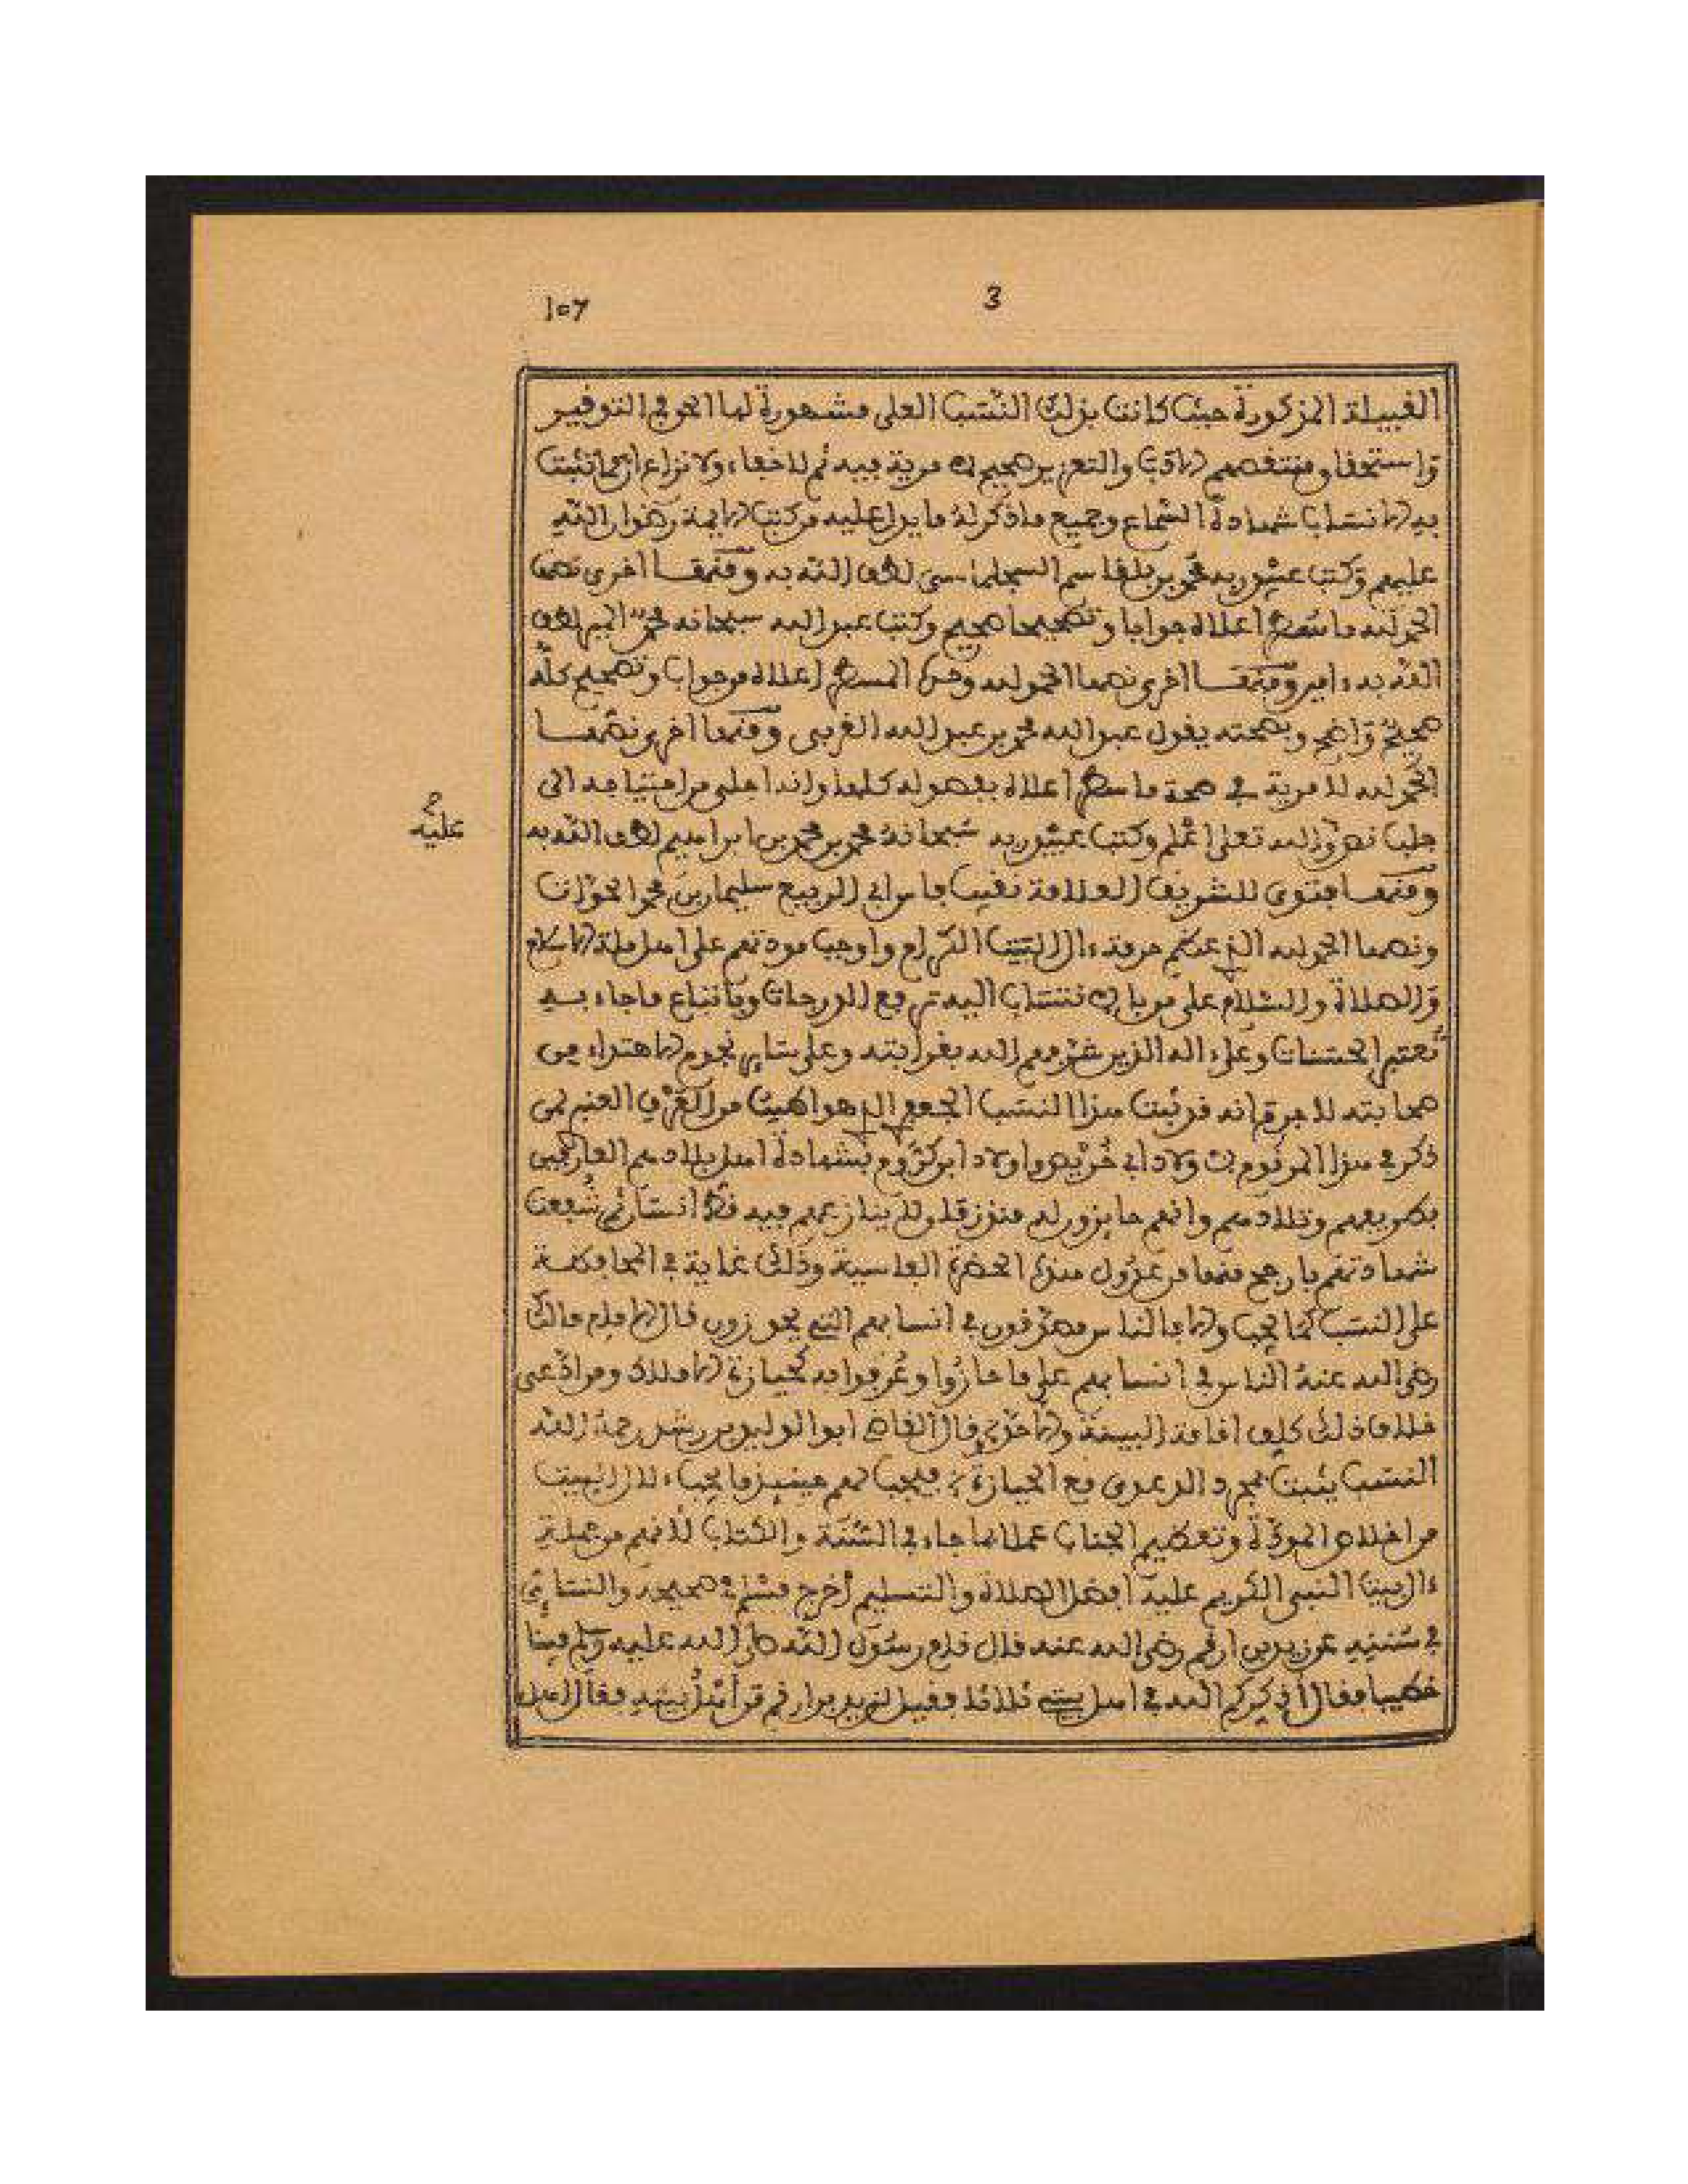 3
107
القبيلة المذكورة حيث كانت بذلك النسب العلى مشهورة لها الحق في التوقير
واستحقاق منتقصهم الادب والتعزير صحيح لا مرية فيه نعم لا خفاء ولا نزاع ان مما تثبت
به الانساب شهادة السماع وجميع ما ذكر له ما يدل عليه من كتب الايمة رضوان الله
عليهم وكتب عبيد ربه محمد بن بلقاسم السجلماسى لطف الله به ومنها اخرى نصها
الحمد لله ما سطر اعلاه جوابا وتصحيحا صحيح وكتب عبد الله سبحانه محمد لطف
الله به ءامين ومنها اخرى نصها الحمد لله وحده المسطر اعلاه من جواب وتصحيح كله
صحيح واضح وبصحته يقول عبد الله محمد بن عبد الله الغربى ومنها اخرى نصها
الحمد لله لا مرية في صحة ما سطر اعلاه بفصوله كلها وانه اجلى من احتياجه الى
جلب نص والله تعلى اعلم وكتب عبيد ربه سبحانه محمد بن محمد بن ابراهيم لطف الله به
عليه صح
ومنها فتوى للشريف العلامة نقيب فاس ابي الربيع سليمان بن محمد الحوات
ونصها الحمد لله الذي عظم حرمة ءال البيت الكرام واوجب مودتهم على اهل ملة الاسلام
والصلاة والسلام على من بالانتساب اليه ترفع الدرجات وباتباع ما جاء به
تغتفر الحسنات وعلى ءاله الذين خصهم الله بقرابته وعلى سائر نجوم الاهتداء من
صحابته لا جرم انه قد ثبت هذا النسب الرفيع الذي هو اطيب من العنبر لمن
ذكر في هذا المرقوم من اولاد ابي واولاد ابن بشهادة اهل بلادهم العارفين
بطريفهم وتلادهم وانهم حايزون له منذ قلو لا ينازعهم فيه قط انسان ثم شفعت
شهادتهم بارجح منها من عدول هذه الحضرة الفاسية وذلك غاية في المحافظة
على النسب كما يجب والا فالناس مصدقون في انسابهم التي يحوزون قال الامام مالك
رضي الله عنه الناس في انسابهم على ما حازوا وعرفوا به كحيازة الاملاك ومن ادعى
خلاف ذلك كلف اقامة البينة والا حد قال القاضى ابو الوليد بن رشد رحمه الله
النسب يثبت بمجرد الدعوى مع الحيازة فيجب لهم حينئذ ما يجب لال البيت
من اخلاص المودة وتعظيم الجناب عملا بما جاء في السنة والكتاب لانهم من جملة
ءال بيت النبى الكريم عليه افضل الصلاة والتسليم أخرج مسلم في صحيحه والنسائي
في سننه عن زيد بن ارقم رضي الله عنه قال قام رسول الله صلى الله عليه وسلم فينا
خطيبا فقال أذكركم الله في اهل بيتى ثلاثا فقيل لزيد بن ارقم من أهل بيته فقال اهل